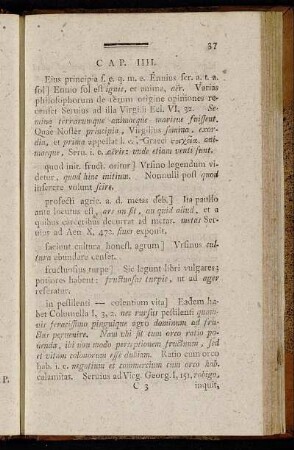 37
CAP. IIII.
Eius principia s. e. q. m. e. Ennius scr. a. t. a.
sol] Ennio sol est ignis, et anima, aër. Varias
philosophorum de rerum origine opiniones
censet Servius ad illa Virgilii Ecl. VI, 32. Se-
mina terrarumque animaeque marisque fuissent.
Quae Noster principia, Virgilius semina, exor-
dia, et prima appellat l. c., Graeci
aeris: unde etiam venti sunt.
quod inir. fruct. oritur] Vrsino legendum vi-
detur, quod hinc initium. Nonnulli post quod
inserere volunt scire.
profecti agric. a. d. metas deb.] Ita paullo
ante locutus est, ars an sit, an quid aliud, et a
quibus carceribus decurrat ad metas. metas Ser-
vius ad Aen X. 472. fines exponit.
faciunt cultura honest. agrum] Vrsinus cul-
tura abundare censet.
fructuosius turpe] Sic legunt libri vulgares;
potiores habent: fructuosus turpis, ut ad ager
referatur.
in pestilenti — culentium vita] Eadem ha-
bet Columella I, 3, 2. nec rursus pestilenti quam-
vis feracissimo pinguique agro dominum ad fru-
ctus pervenire. Nam ubi sit cum orco ratio po-
nenda, ibi non modo perceptionem fructuum, sed
et vitam colonorum esse dubiam. Ratio cum orco
hab. i. e. negotium et commercium cum orco hab.
calamitas. Servius ad Virg. Georg. I, 151, robigo,
C 3 inquit,
P.